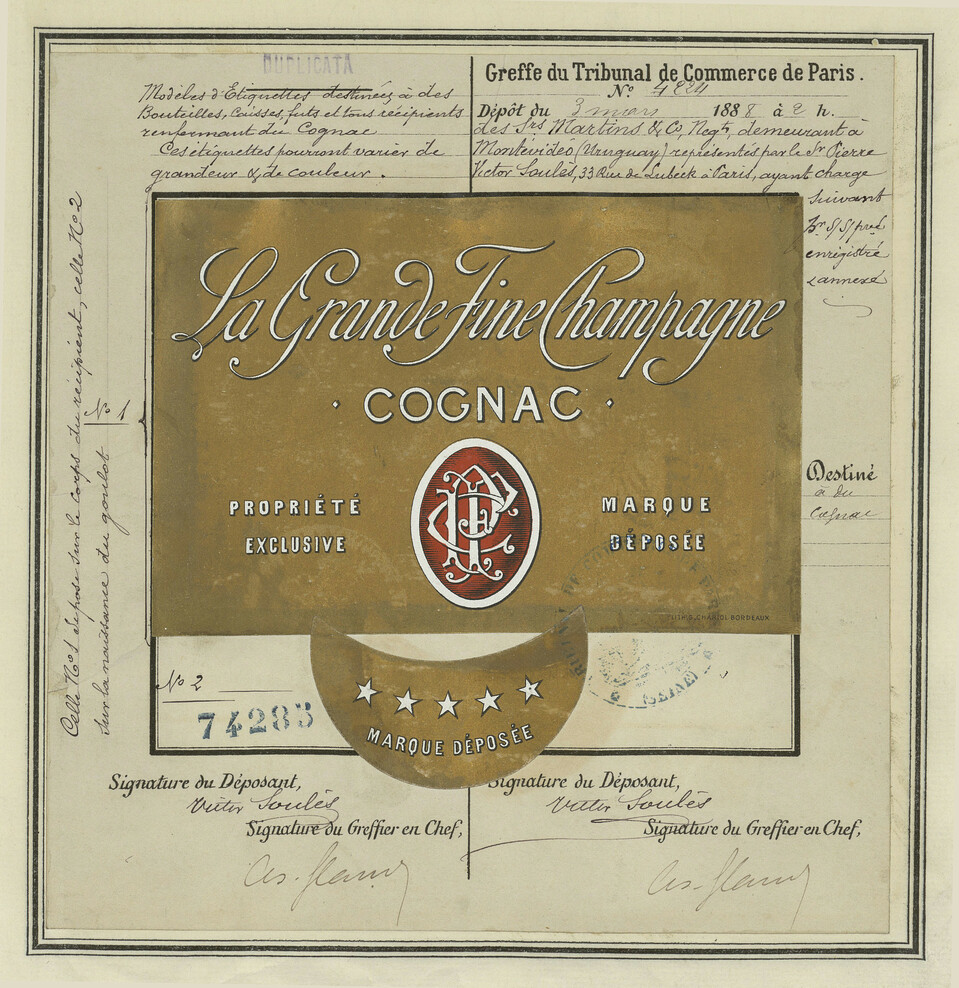 DUPLICATA
Modèles d'Etiquettes destinées à des
Bouteilles, Caisses, futs et tous récipients
renfermant du Cognac
Ces étiquettes pourront varier de
grandeur & de couleur.
Greffe du Tribunal de Commerce de Paris.
N° 4824
Dépôt du 3 mars 1888 à 2 h.
des Srs Martins & Co, Negts, demeurant à
Montévidéo (Uruguay) représentés par le Sr Pierre
Victor Soulès, 33 Rue de Lubeck à Paris, ayant charge
suivant
enregistré
& annexé
Celle No 1 se pose sur le corps du récipient, celle No 2
sur la naissance du goulot
No 1
La Grande Fine Champagne
· COGNAC ·
PROPRIÉTÉ
EXCLUSIVE
MARQUE
DÉPOSÉE
Destiné
à du
Cognac
BORDEAUX
(SEINE)
No 2
74285
MARQUE DÉPOSÉE
Signature du Déposant,
Victor Soulès
Signature du Greffier en Chef,
Signature du Déposant,
Victor Soulès
Signature du Greffier en Chef,